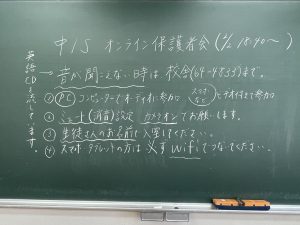 中1S オンライン保護者会(4/2 18:40〜)
英語CDを流しています。→ 音が聞こえない時は校舎(64-4833)まで。
① PC コンピューターでオーディオに参加 スマホなど ビデオ付きで参加
② ミュート(消音)設定 カメラオンでお願いします。
③ 生徒さんのお名前で入室してください。
④ スマホ・タブレットの方は必ずwifiでつないでください。